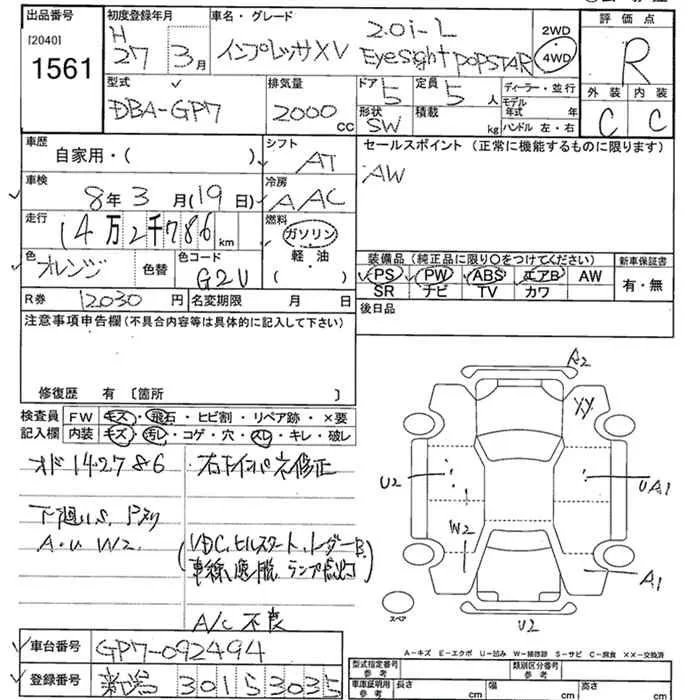 出品番号
[2040]
1561
初度登録年月
H
27 3月
車名・グレード
インプレッサXV
2.0i-L
EyeSight POPSTAR
2WD
4WD
評価点
R
外装 内装
C C
型式
DBA-GP7
排気量
2000 CC
ドア 5
形状 SW
定員 5人
積載 kg
ディーラー・並行
モデル年式 年
ハンドル 左・右
車歴
自家用・( )
シフト
AT
車検
8年 3月(19日)
冷房
AAC
走行
14万2千786km
燃料
ガソリン
軽油
( )
色
オレンジ
色替
色コード
G2U
R券 12030円
名変期限 月 日
セールスポイント (正常に機能するものに限ります)
AW
装備品 (純正品に限り○をつけてください)
PS PW ABS エアB AW
SR ナビ TV カワ
新車保証書
有・無
後日品
注意事項申告欄 (不具合内容等は具体的に記入して下さい)
修復歴 有 [箇所 ]
検査員
記入欄
FW キズ・飛石・ヒビ割・リペア跡・×要
内装 キズ・汚レ・コゲ・穴・スレ・キレ・破レ
オド142786
右インパネ修正
下廻り
A・U W2
A/C 不良
A2
XX
U2
UA1
W2
A1
U2
スペア
A-キズ E-エクボ U-凹み W-補修跡 S-サビ C-腐食 XX-交換済
車台番号 GP7-092494
登録番号 新潟 301 5 3035
型式指定番号
参考
類別区分番号
参考
車庫証明用
参考
長さ cm
幅 cm
高さ cm